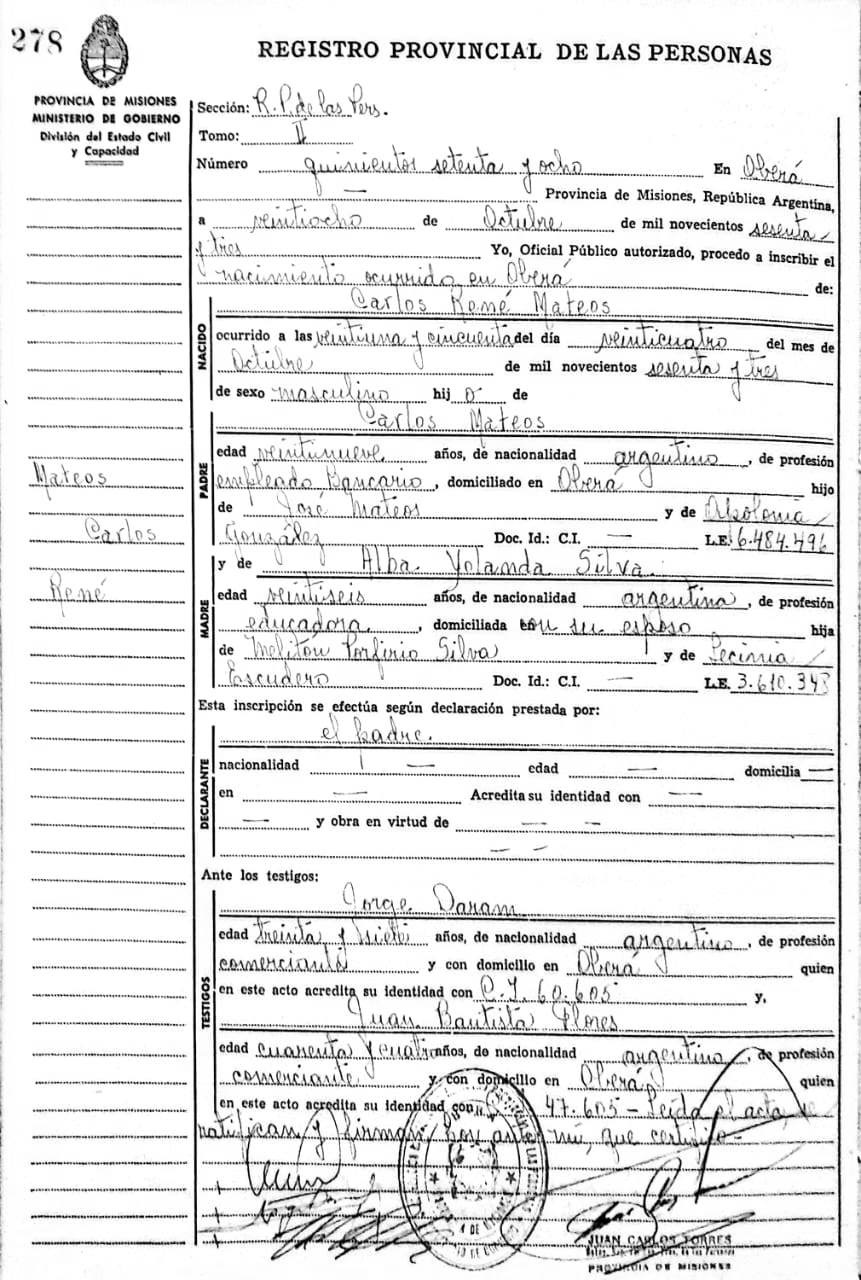 278
REGISTRO PROVINCIAL DE LAS PERSONAS
PROVINCIA DE MISIONES
MINISTERIO DE GOBIERNO
División del Estado Civil
y Capacidad
Sección: R. P. de las Pers.
Tomo: II
Número quinientos setenta y ocho En Oberá
— Provincia de Misiones, República Argentina,
a veintiocho de Octubre de mil novecientos sesenta
y tres Yo, Oficial Público autorizado, procedo a inscribir el
nacimiento ocurrido en Oberá de:
NACIDO
Carlos René Mateos
ocurrido a las veintiuna y cincuenta del día veinticuatro del mes de
Octubre de mil novecientos sesenta y tres
de sexo masculino hij o de
PADRE
Carlos Mateos
edad veintinueve años, de nacionalidad argentino, de profesión
empleado Bancario, domiciliado en Oberá hijo
de José Mateos y de Apolonia
González Doc. Id.: C.I. — L.E. 6.484.496
Mateos
Carlos
René
MADRE
y de Alba Yolanda Silva
edad veintiseis años, de nacionalidad argentina, de profesión
educadora, domiciliada con su esposo hija
de Melitón Porfirio Silva y de
Escudero Doc. Id.: C.I. — L.E. 3.610.343
Esta inscripción se efectúa según declaración prestada por:
DECLARANTE
el padre.
nacionalidad — edad — domicilia —
en — Acredita su identidad con —
— y obra en virtud de — —
— —
Ante los testigos:
TESTIGOS
Jorge Daram
edad treinta y siete años, de nacionalidad argentino, de profesión
comerciante y con domicilio en Oberá quien
en este acto acredita su identidad con C.I. 60.605 y,
Juan Bautista Flores
edad cuarenta y cuatro años, de nacionalidad argentino, de profesión
comerciante y con domicilio en Oberá, quien
en este acto acredita su identidad con 47.605 - Leída el acta, se
ratifican y firman por ante mí, que certifico-
JUAN CARLOS TORRES
PROVINCIA DE MISIONES